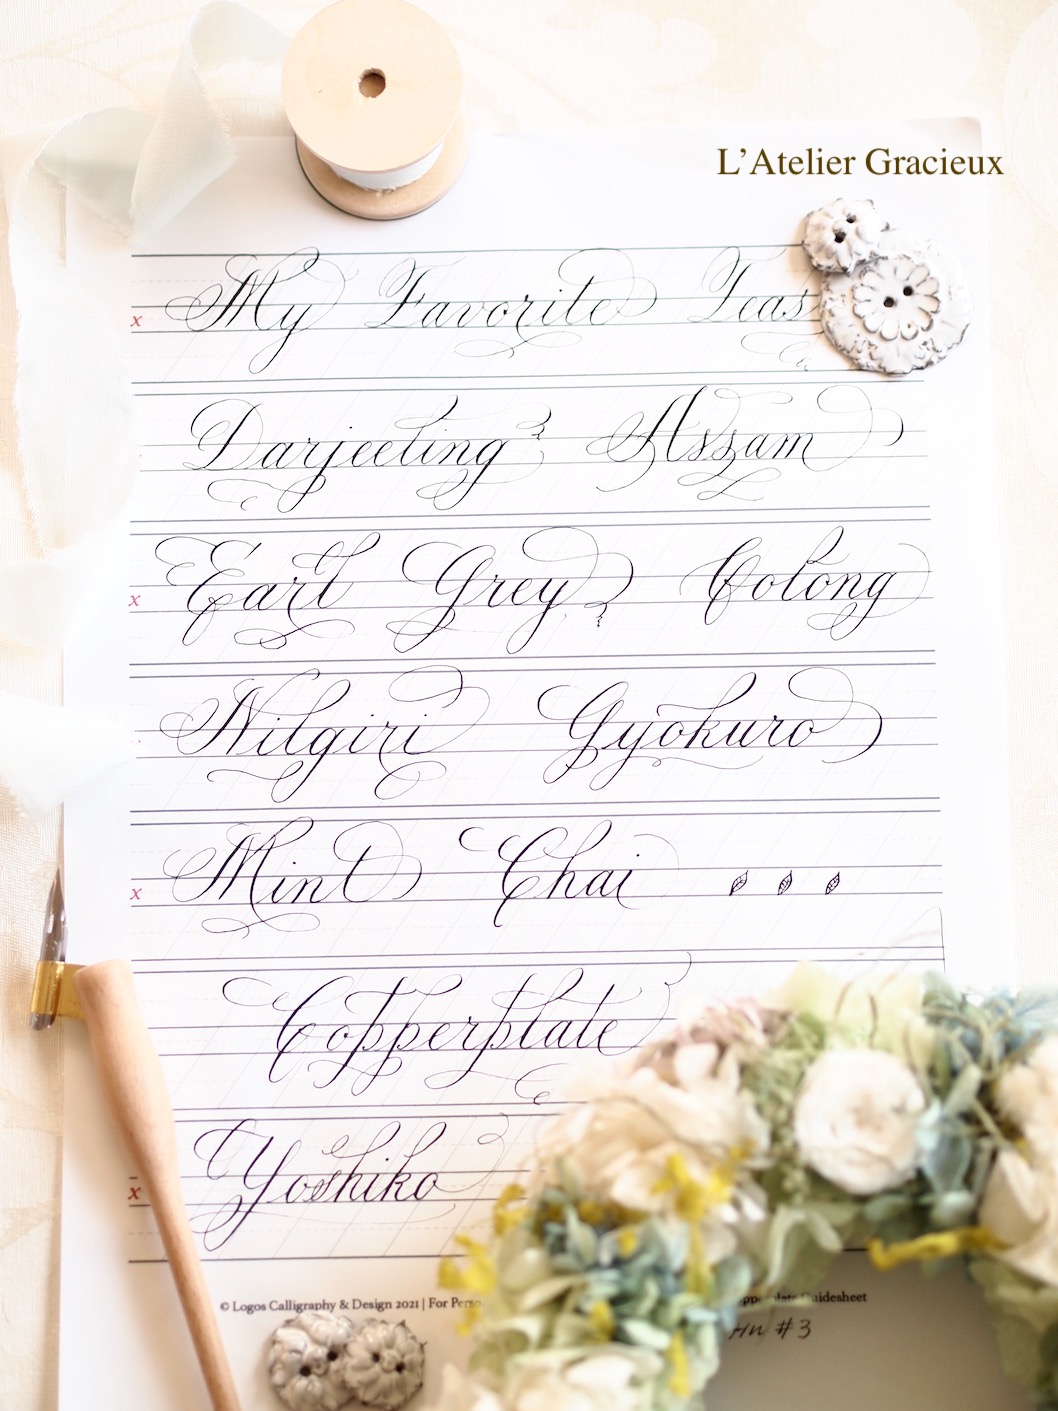 L'Atelier Gracieux
My Favorite Teas
Darjeeling Assam
Earl Grey Oolong
Nilgiri Gyokuro
Mint Chai
Copperplate
Yoshiko
x
x
x
x
© Logos Calligraphy & Design 2021 | For Perso
opperplate Guidesheet
HW #3